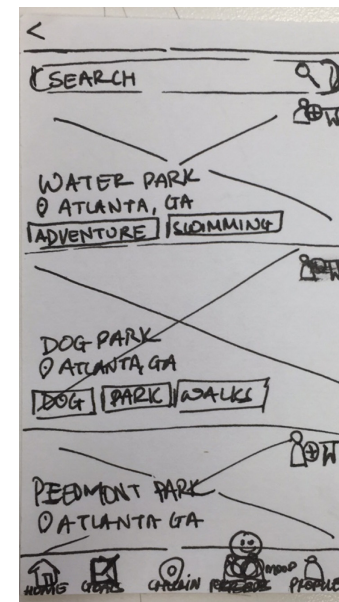 SEARCH
WATER PARK
ATLANTA, GA
ADVENTURE SWIMMING
DOG PARK
ATLANTA GA
DOG PARK WALKS
PIEDMONT PARK
ATLANTA GA
MOOD
HOME GOALS PROFILE